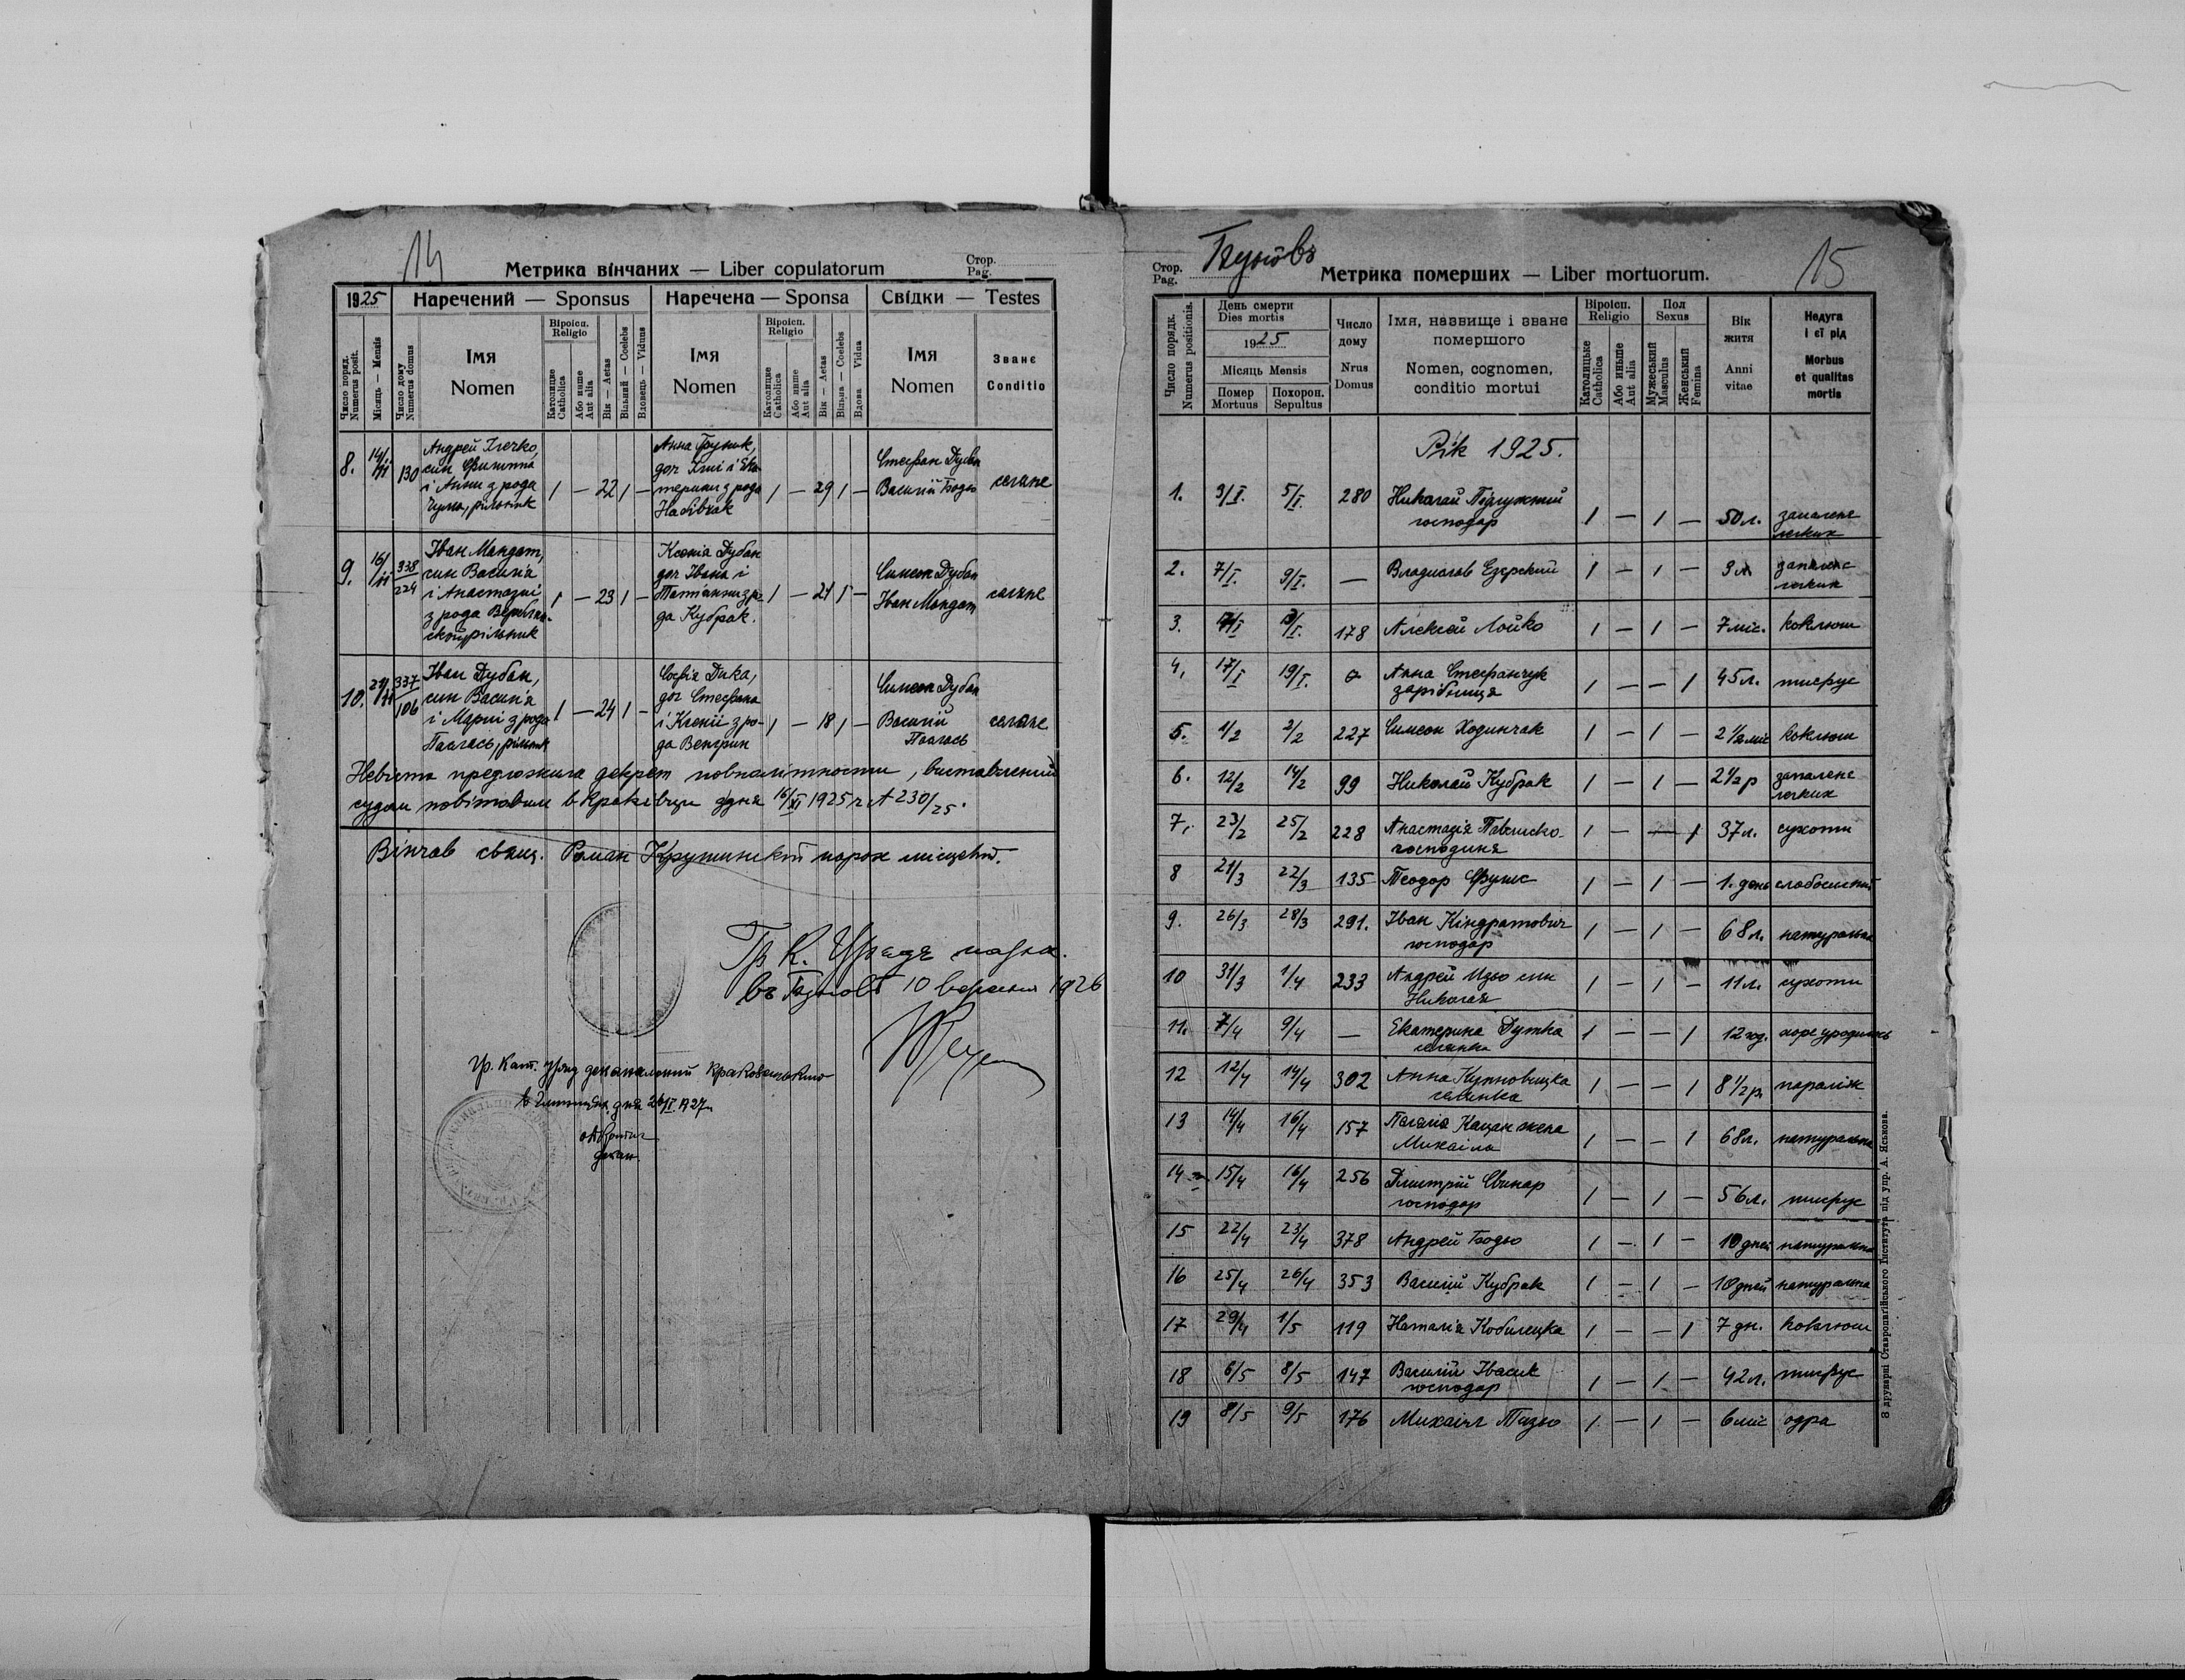 14
Метрика вінчаних — Liber copulatorum
Стор.
Pag.
1925
Наречений — Sponsus
Наречена — Sponsa
Свідки — Testes
Число поряд.
Numerus posit.
Місяць — Mensis
Число дому
Numerus domus
Імя
Nomen
Віроісп.
Religio
Католицке
Catholica
Або инше
Aut alia
Вік — Aetas
Вільний — Coelebs
Вдовець — Viduus
Імя
Nomen
Віроісп.
Religio
Католицке
Catholica
Або инше
Aut alia
Вік — Aetas
Вільна — Coelebs
Вдова Vidua
Імя
Nomen
Званє
Conditio
8.
130
Андрей
син Филипа
і Анни з рода
рільник
1 — 22 1 —
Анна
доч і Ека
терини з рода
1 — 29 1 —
Стефан
Василій Бодьо
селяне
9.
16/II
338/224
Іван Мандат,
син Василія
і Анастазиї
з рода
рільник
1 — 23 1 —
Ксенія Дубан
доч Івана і
Татіанни з ро-
да Кубрак.
1 — 21 1 —
Симеон Дубан
Іван Мандат
селяне
10.
337/106
Іван Дубан,
син Василія
і Марії з рода
рільник
1 — 24 1 —
Софія Дика,
доч Стефана
і Ксенії з ро-
да Венгрин
1 — 18 1 —
Симеон Дубан
Василій
селяне
Невіста предложила декрет повнолітности, виставлений
судом повітовим в Краківци з дня 16/XI 1925 ч. А 230/25.
Вінчав свящ. Роман Крушинскій парох місцевий.
Гр. К. Урядъ парох.
въ 10 вересня 1926
Гр. Кат. Уряд деканальний Краковецького
дня 1927
декан.
Стор.
Pag.
Бунôвъ
Метрика померших — Liber mortuorum.
15
Число порядк.
Numerus positionis.
День смерти
Dies mortis
1925
Місяць Mensis
Помер
Mortuus
Похорон.
Sepultus
Число
дому
Nrus
Domus
Імя, назвище і званє
помершого
Nomen, cognomen,
conditio mortui
Віроісп.
Religio
Католицьке
Catholica
Або иньше
Aut alia
Пол
Sexus
Мужеський
Masculus
Женський
Femina
Вік
житя
Anni
vitae
Недуга
і єї рід
Morbus
et qualitas
mortis
Рік 1925.
1. 3/I. 5/I. 280 Николай Підлужний 1 — 1 — 50 л. запалене
господар легких
2. 7/I. 9/I. — Владислав Езерский 1 — 1 — 3 л запалене
легких
3. 178 Алексей Лойко 1 — 1 — 7 міс. коклюш
4. 17/I 19/I. Анна Стефанчук 1 — — 1 45 л. тифус
зарібниця
5. 1/2 2/2 227 Симеон Ходинчак 1 — 1 — 2 1/2 міс коклюш
6. 12/2 14/2 99 Николай Кубрак 1 — 1 — 2 1/2 р запалене
легких
7. 23/2 25/2 228 Анастазія Павлиско 1 — — 1 37 л. сухоти
господиня
8 21/3 22/3 135 Теодор 1 — 1 — 1. день
9. 26/3 28/3 291. Іван Кіндратович 1 — 1 — 68 л. натуральна
господар
10 31/3 1/4 233 Андрей син 1 — 1 — 11 л. сухоти
Николая
11. 7/4 9/4 — Екатерина Дутка 1 — — 1 12 год.
селянка
12 12/4 14/4 302 Анна Купновицка 1 — — 1 8 1/2 р. параліж
селянка
13 14/4 16/4 157 Пелагія Кацан жена 1 — — 1 68 л. натуральна
Михаіла
14 15/4 16/4 256 Дмитрій Свинар 1 — 1 — 56 л. тифус
господар
15 22/4 23/4 378 Андрей Бодьо 1 — 1 — 10 дней натуральна
16 25/4 26/4 353 Василій Кубрак 1 — 1 — 10 дней натуральна
17 29/4 1/5 119 Наталія Кобилецка 1 — — 1 7 дн. коклюш
18 6/5 8/5 147 Василій Івасик 1 — 1 — 42 л. тифус
господар
19 8/5 9/5 176 Михаіл 1 — 1 — 6 міс одра
З друкарні Ставропигійського Інститута під упр. А. Яськова.